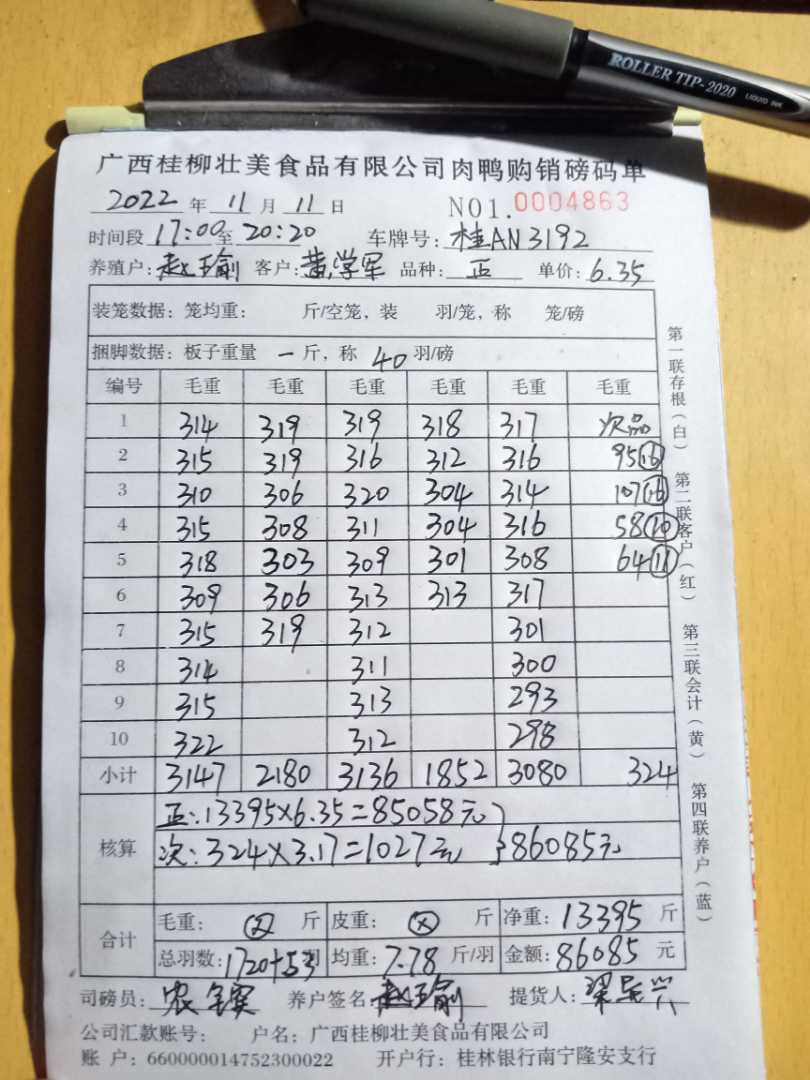 ROLLER TIP-2020 LIQUID INK
广西桂柳壮美食品有限公司肉鸭购销磅码单
2022 年 11 月 11 日 NO1.0004863
时间段 17:00 至 20:20 车牌号: 桂AN3192
养殖户: 赵瑜 客户: 黄学军 品种: 正 单价: 6.35
装笼数据: 笼均重: 斤/空笼, 装 羽/笼, 称 笼/磅
捆脚数据: 板子重量 一 斤, 称 40 羽/磅
编号 毛重 毛重 毛重 毛重 毛重 毛重
1 314 319 319 318 317 次品
2 315 319 316 312 316 95⑯
3 310 306 320 304 314 107⑯
4 315 308 311 304 316 58⑩
5 318 303 309 301 308 64⑪
6 309 306 313 313 317
7 315 319 312 301
8 314 311 300
9 315 313 293
10 322 312 298
小计 3147 2180 3136 1852 3080 324
核算 正:13395×6.35=85058元
次:324×3.17=1027元 }86085元
合计 毛重: 斤 皮重: 斤 净重: 13395 斤
总羽数: 1720+53 羽 均重: 7.78 斤/羽 金额: 86085 元
司磅员: 养户签名: 赵瑜 提货人:
公司汇款账号: 户名: 广西桂柳壮美食品有限公司
账 户: 660000014752300022 开户行: 桂林银行南宁隆安支行
第一联存根(白) 第二联客户(红) 第三联会计(黄) 第四联养户(蓝)